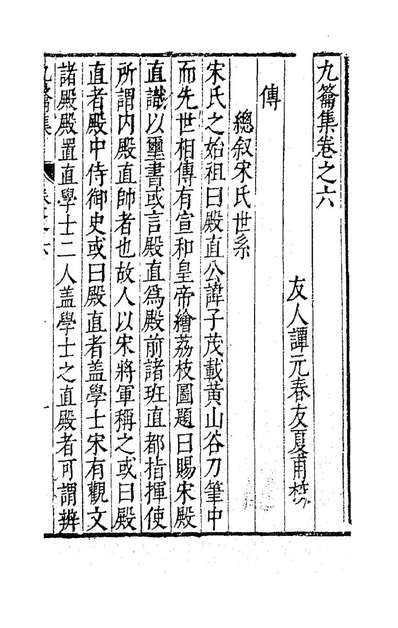 九籥集卷之六
友人譚元春友夏甫
傳
總叙宋氏世系
宋氏之始祖曰殿直公諱子茂載黄山谷刀筆中
而先世相傳有宣和皇帝繪荔枝圖題曰賜宋殿
直識以璽書或言殿直為殿前諸班直都指揮使
所謂内殿直帥者也故人以宋將軍稱之或曰殿
直者殿中侍御史或曰殿直者盖學士宋有觀文
諸殿殿置直學士二人盖學士之直殿者可謂辨
九籥集
卷之六
一